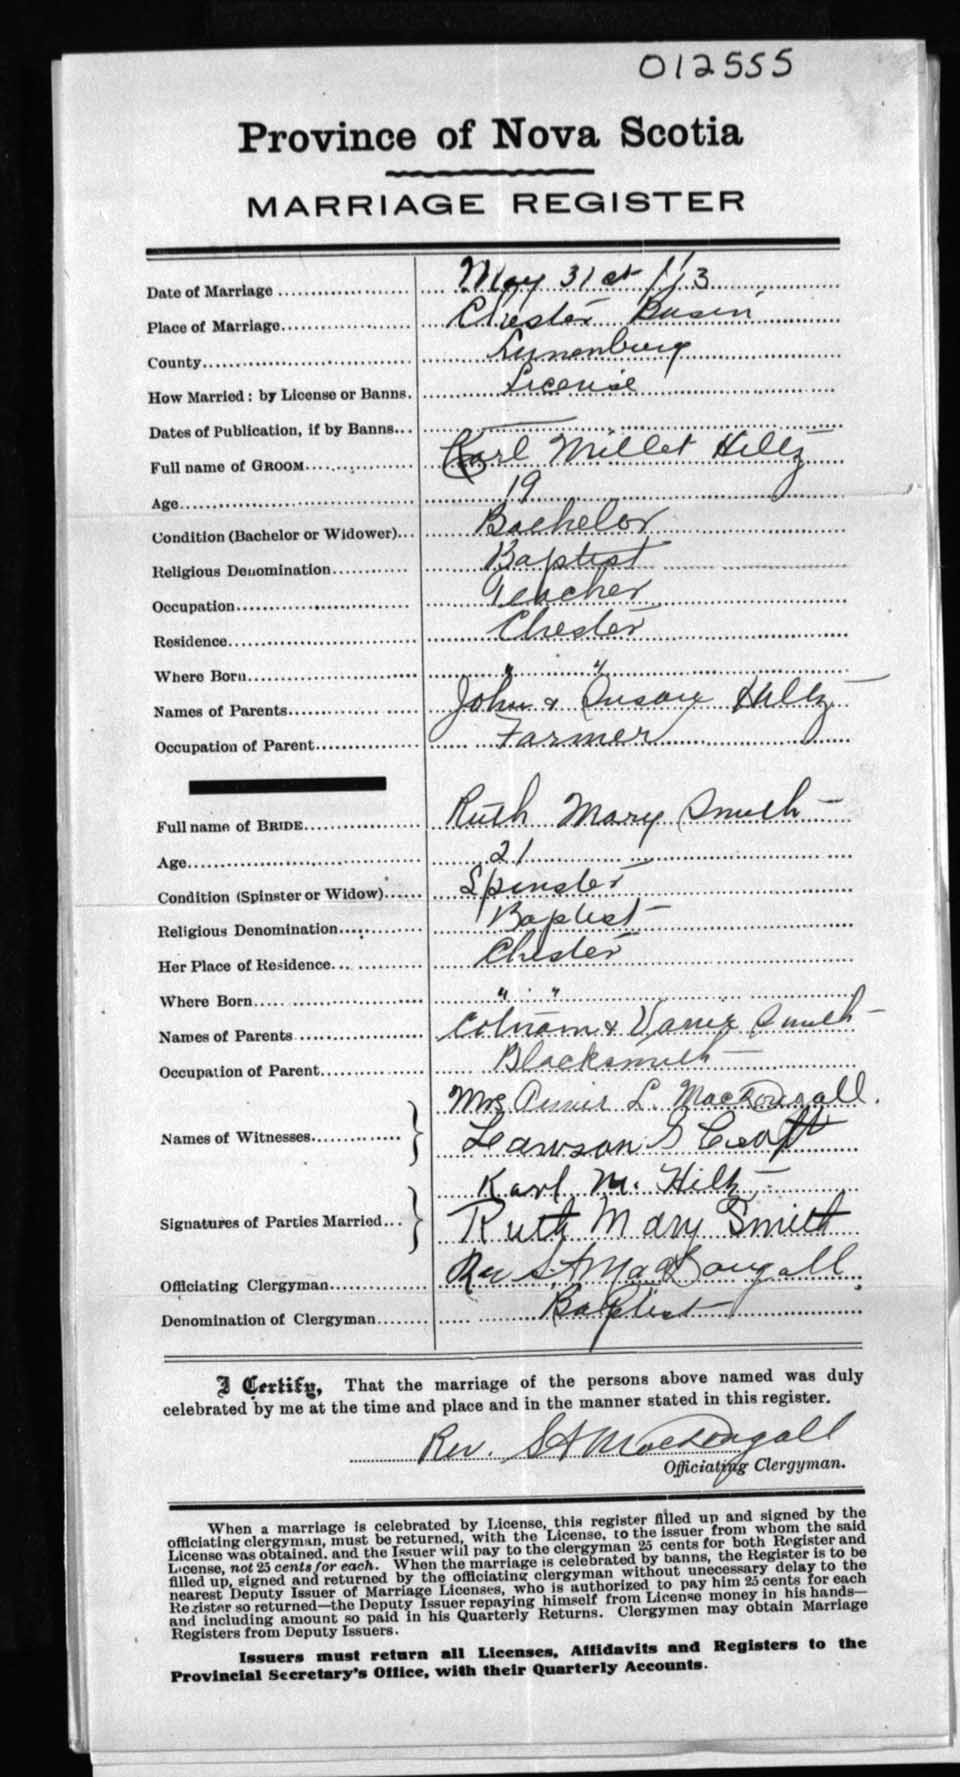 012555
Province of Nova Scotia
MARRIAGE REGISTER
Date of Marriage May 31st
Place of Marriage Chester Basin
County Lunenburg
How Married: by License or Banns. License
Dates of Publication, if by Banns... —
Full name of GROOM Karl Millet Hiltz
Age 19
Condition (Bachelor or Widower)... Bachelor
Religious Denomination Baptist
Occupation Teacher
Residence Chester
Where Born " "
Names of Parents John & Susan Hiltz
Occupation of Parent Farmer
Full name of BRIDE Ruth Mary Smith
Age 21
Condition (Spinster or Widow) Spinster
Religious Denomination Baptist
Her Place of Residence Chester
Where Born " "
Names of Parents & Smith
Occupation of Parent Blacksmith
Mrs L. MacDougall.
Names of Witnesses } Lawson S Croft
Karl M. Hiltz
Signatures of Parties Married... } Ruth Mary Smith
Officiating Clergyman Rev S. A MacDougall
Denomination of Clergyman Baptist
I Certify, That the marriage of the persons above named was duly
celebrated by me at the time and place and in the manner stated in this register.
Rev. S A MacDougall
Officiating Clergyman.
When a marriage is celebrated by License, this register filled up and signed by the
officiating clergyman, must be returned, with the License, to the issuer from whom the said
License was obtained. and the Issuer will pay to the clergyman 25 cents for both Register and
License, not 25 cents for each. When the marriage is celebrated by banns, the Register is to be
filled up, signed and returned by the officiating clergyman without unecessary delay to the
nearest Deputy Issuer of Marriage Licenses, who is authorized to pay him 25 cents for each
Register so returned—the Deputy Issuer repaying himself from License money in his hands—
and including amount so paid in his Quarterly Returns. Clergymen may obtain Marriage
Registers from Deputy Issuers.
Issuers must return all Licenses, Affidavits and Registers to the
Provincial Secretary's Office, with their Quarterly Accounts.